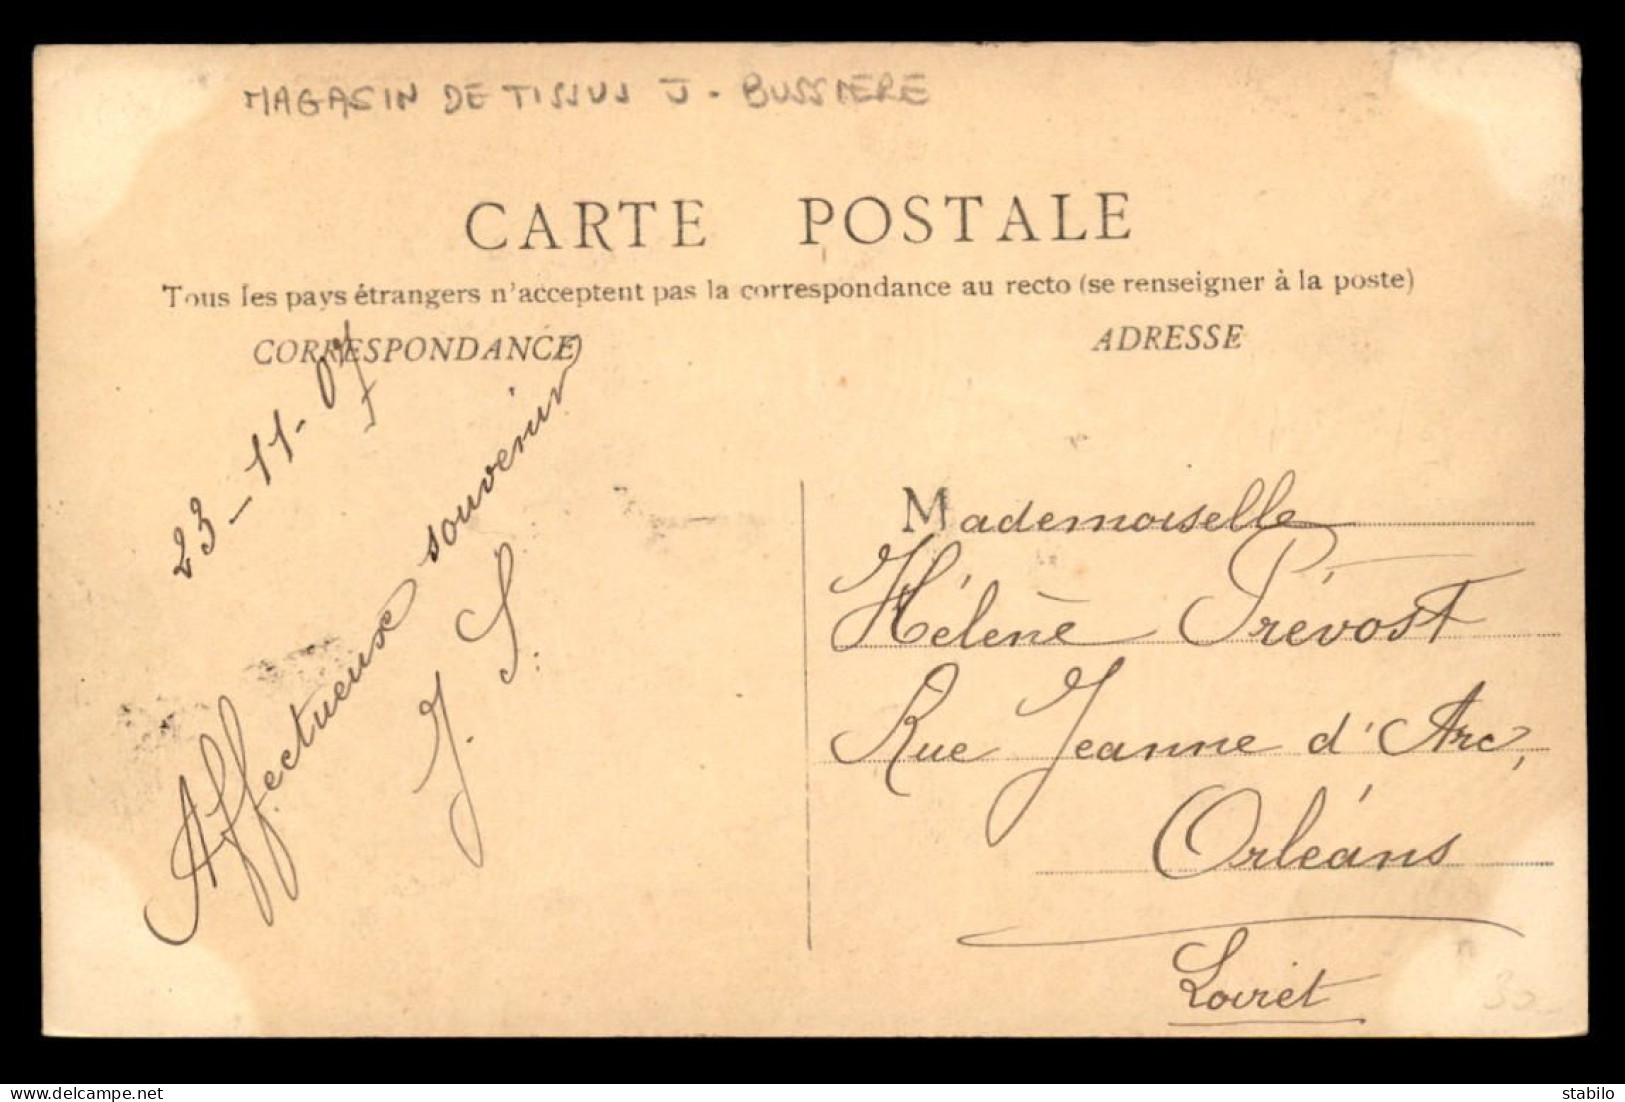 MAGASIN DE TISSUS J. BUSSIERE
CARTE POSTALE
Tous les pays étrangers n'acceptent pas la correspondance au recto (se renseigner à la poste)
CORRESPONDANCE
ADRESSE
23-11-07
Affectueux souvenir
J. S.
Mademoiselle
Hélène Prévost
Rue Jeanne d'Arc,
Orléans
Loiret
30
delcampe.net
stabilo